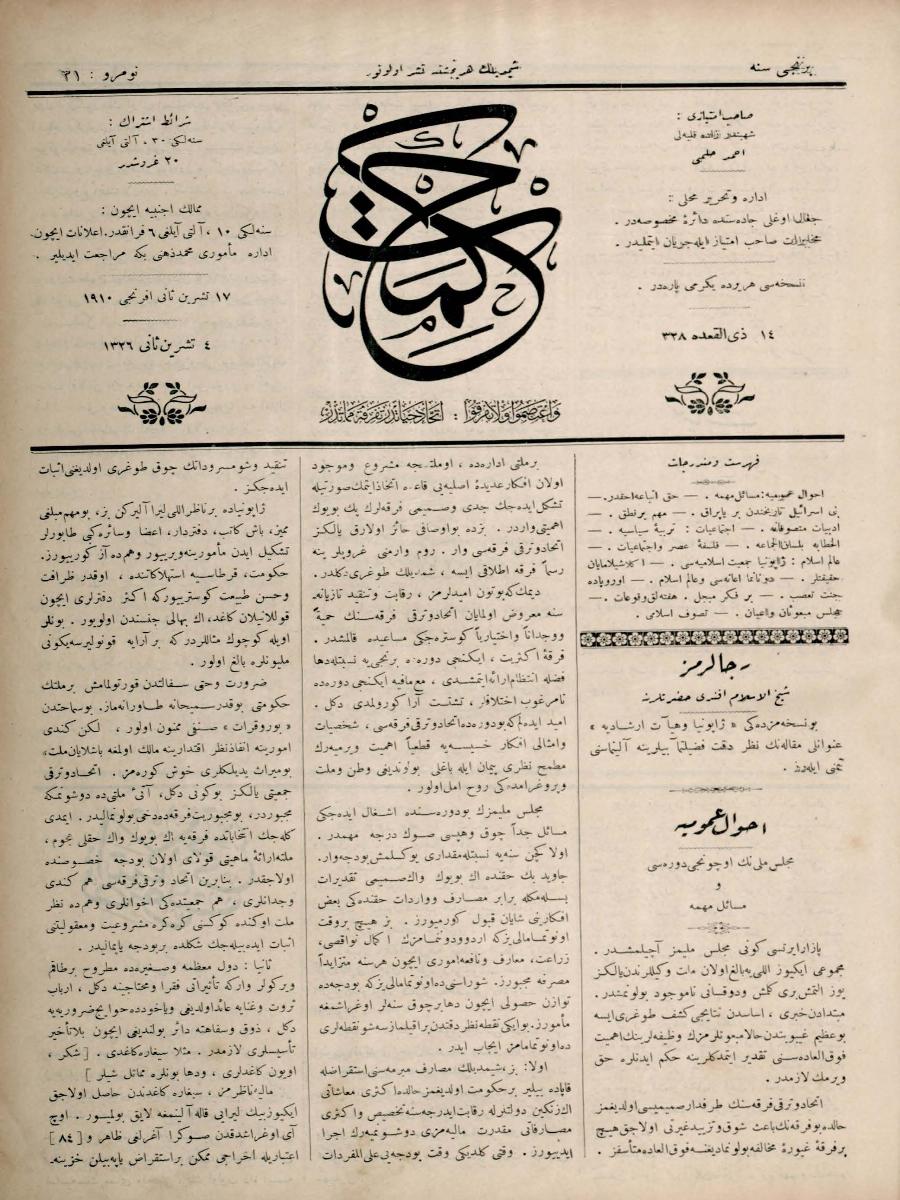 برنجی سنه
شیمدیلك هر پنجشنبه نشر اولونور
نومرو : ٣١
صاحب امتیازی :
شهبندر زاده فلبه‌لی
احمد حلمی
اداره و تحریر محلی :
جغال اوغلی جاده‌سنده دائرهٔ مخصوصه‌در .
مخابرات صاحب امتیاز ایله جریان ایتملیدر .
نسخه‌سی هر یرده یکرمی پاره‌در .
١٤ ذی القعده ٣٢٨
حکمت
واعتصموا ولا تفرقوا : اتحاد حیاتدر تفرقه مماتدر
شرائط اشتراك :
سنه‌لکی ٣٠ ، آلتی آیلغی
٢٠ غروشدر
ممالك اجنبیه ایچون :
سنه‌لکی ١٠ ، آلتی آیلغی ٦ فرانقدر. اعلانات ایچون
اداره مأموری محمد ذهنی بکه مراجعت ایدیلیر .
١٧ تشرین ثانی افرنجی ١٩١٠
٤ تشرین ثانی ١٣٢٦
فهرست مندرجات
احوال عمومیه: مسائل مهمه . — حق اتباعه احقدر. —
بنی اسرائیل تاریخندن بر یاپراق . — مهم بر نطق . —
ادبیات متصوفانه . — اجتماعیات : تربیهٔ سیاسیه . —
الخطابه بلسان الجماعه . — فلسفهٔ عصر و اجتماعیات . —
عالم اسلام : ژاپونیا جمعیت اسلامیه‌سی . — آکلاشیلمایان
حقیقتلر . — دوننما اعانه‌سی و عالم اسلام . — اوروپاده
جنت تعصب . — بر فکر مبجل . هفته‌لق وقوعات . —
مجلس مبعوثان و اعیان . — تصوف اسلامی .
رجالمز
شیخ الاسلام افندی حضرتلرینه
بو نسخه‌مزده‌کی « ژاپونیا و هیأت ارشادیه »
عنوانلی مقاله‌نك نظر دقت فضیلتپناهیلرینه آلینماسی
تمنی ایله‌رز .
احوال عمومیه
مجلس ملی‌نك اوچونجی دوره‌سی
و
مسائل مهمه
پازار ایرتسی کونی مجلس ملیمز آچیلمشدر .
مجموعی ایکیوز اللی‌یه بالغ اولان ملت وکیللرندن یالکز
یوز التمش بری کلمش و دوقسانی ناموجود بولونمشدر .
مبتدادن خبری ، اساسدن نتایجی کشف طوغری ایسه
بو عظیم غیبوبتدن حالا مبعوثلرمزك وظیفه‌لرینك اهمیت
فوق العاده‌سنی تقدیر ایتمدکلرینه حکم ایدنلره حق
ویرمك لازمدر .
اتحاد و ترقی فرقه‌سنك طرفدار صمیمیسی اولدیغمز
حالده بو فرقه‌نك باعث شوق و تزیید غیرتی اولاجق هیچ
بر فرقهٔ غیورهٔ مخالفه بولونمادیغنه فوق العاده متأسفز .
بر ملتی اداره‌ده ، او ملتجه مشروع و موجود
اولان افکار عدیدهٔ اصلیه‌یی قاعده اتخاذ ایتمك صورتیله
تشکل ایده‌جك جدی و صمیمی فرقه‌لرك پك بویوك
اهمیتی واردر . بزده بو اوصافی حائز اولارق یالکز
اتحاد و ترقی فرقه‌سی وار . روم و ارمنی غروپلرینه
رسماً فرقه اطلاقی ایسه ، شمدیلك طوغری دکلدر .
دیمك که بوتون امیدلرمز ، رقابت و تنقید تازیانه‌
سنه معروض اولمایان اتحاد و ترقی فرقه‌سنك حمیةً
ووجداناً واختیاریاً کوستره‌جکی مساعیده قالمشدر .
فرقهٔ اکثریت ، ایکنجی دوره‌ده برنجی‌یه نسبتله دها
فضله انتظام ارائه ایتمشدی ، مع مافیه ایکنجی دوره‌ده
نامرغوب اختلافلر ، تشتت آرا کورولمدی دکل .
امید ایده‌لم که بو دوره‌ده اتحاد و ترقی فرقه‌سی ، شخصیات
و امثالی افکار خسیسه‌یه قطعیاً اهمیت ویرمیه‌رك
مطمح نظری پیمان ایله باغلی بولوندیغی وطن و ملت
و پروغرامده‌کی روح امل اولور .
مجلس ملیمزك بو دوره‌سنده اشغال ایده‌جکی
مسائل جداً چوق و هپسی صوك درجه مهمدر .
اولا کچن سنه‌یه نسبتله مقداری یوکسلمش بودجه وار .
جاوید بك حقنده اك بویوك واك صمیمی تقدیرات
بسلمکله برابر مصارف و واردات حقنده‌کی بعض
افکارینی شایان قبول کورمیورز . بز هیچ بر وقت
اونوتمامالی‌یز که اردو و دوننمامزك اکمال نواقصی،
زراعت، معارف و نافعه اموری ایچون هر سنه متزایداً
مصرفه مجبورز. شوراسنی ده اونوتمامالی‌یز که بودجه‌ده
توازن حصولی ایچون دها بر چوق سنه‌لر اوغراشمغه
مأمورز. بو ایکی نقطه‌نظردقتدن براقیلمازسه شو نقطه‌لری
ده اونوتمامامز ایجاب ایدر .
اولا: بز، شیمدیلك مصارف مبرمه‌سنی استقراضله
قاپاده بیلیر بر حکومت اولدیغمز حالده اکثری معاشاتی
اك زنکین دولتلرله رقابت ایدرجه‌سنه تخصیص و اکثری
مصارفاتی مقدرت مالیه‌مزی دوشونمیه‌رك اجرا
ایدییورز . وقتی کلدیکی وقت بودجه‌یی علی المفردات
تنقید و شو مسروداتك چوق طوغری اولدیغنی اثبات
ایده‌جکز.
ژاپونیاده بر ناظر اللی لیرا آلیرکن بز، بو مهم مبلغی
ممیز، باش کاتب، دفتردار، اعضا و سائره کبی طابورلر
تشکیل ایدن مأمورینه ویریبور و هم ده آز کورییورز.
حکومت، قرطاسیه استهلاکاتنده ، او قدر ظرافت
و حسن طبیعت کوستریبور که اکثر دفترلری ایچون
قوللانیلان کاغد، اك بهالی جنسندن اولویور . بونلر
اویله کوچوك مثاللردر که بر آرایه قونولیرسه یکونی
ملیونلره بالغ اولور .
ضرورت و حتی سفالتدن قورتولمامش بر ملتك
حکومتی بو قدر مسیحانه طاورانه‌ماز. بو سماحتدن
« بوروقرات » صنفی ممنون اولور ، لکن کندی
امورینه انفاذ نظر اقتدارینه مالك اولمغه باشلایان ملت«
بو میراث یدیلکلری خوش کوره‌مز . اتحاد و ترقی
جمعیتی یالکز بوکونی دکل، آتیٔ ملتی ده دوشونمکه
مجبوردر، بو مجبوریت فرقه‌ده دخی بولونمالیدر. ایمدی
کله‌جك انتخاباتده فرقه‌یه اك بویوك واك حقلی هجوم،
ملته ارائهٔ ماهیتی قولای اولان بودجه خصوصنده
اولاجقدر. بناءً برین اتحاد و ترقی فرقه‌سی هم کندی
وجدانلری ، هم جمعیتده‌کی اخوانلری و هم ده نظر
ملت اوکنده کوکسنی کره کره مشروعیت و معقولیتنی
اثبات ایده‌بیله‌جك شکلده بر بودجه یاپمالیدر .
ثانیا : دول معظمه و صغیره‌ده مطروح بر طاقم
ویرکولر وارکه تأثیراتی فقرا و محتاجینه دکل ، ارباب
ثروت و غنایه عائد اولدیغی و یاخود ده حوایج ضروریه‌یه
دکل ، ذوق و سفاهته دائر بولندیغی ایچون بلا تأخیر
تأسیسلری لازمدر . مثلا سیغاره کاغدی . [ شکر ،
اویون کاغدلری ، ودها بونلره مماثل شیلر ]
مالیه ناظرمز ، سیغاره کاغدندن حاصل اولاجق
ایکیوز بیك لیرایی قاله آلنمغه لایق بولمیور . اوچ
آی اوغراشدقدن صوکرا آغرلغی ظاهر و [ ٨٤ ]
اعتباریله اخراجی ممکن بر استقراض یاپه‌بیلن خزینه‌